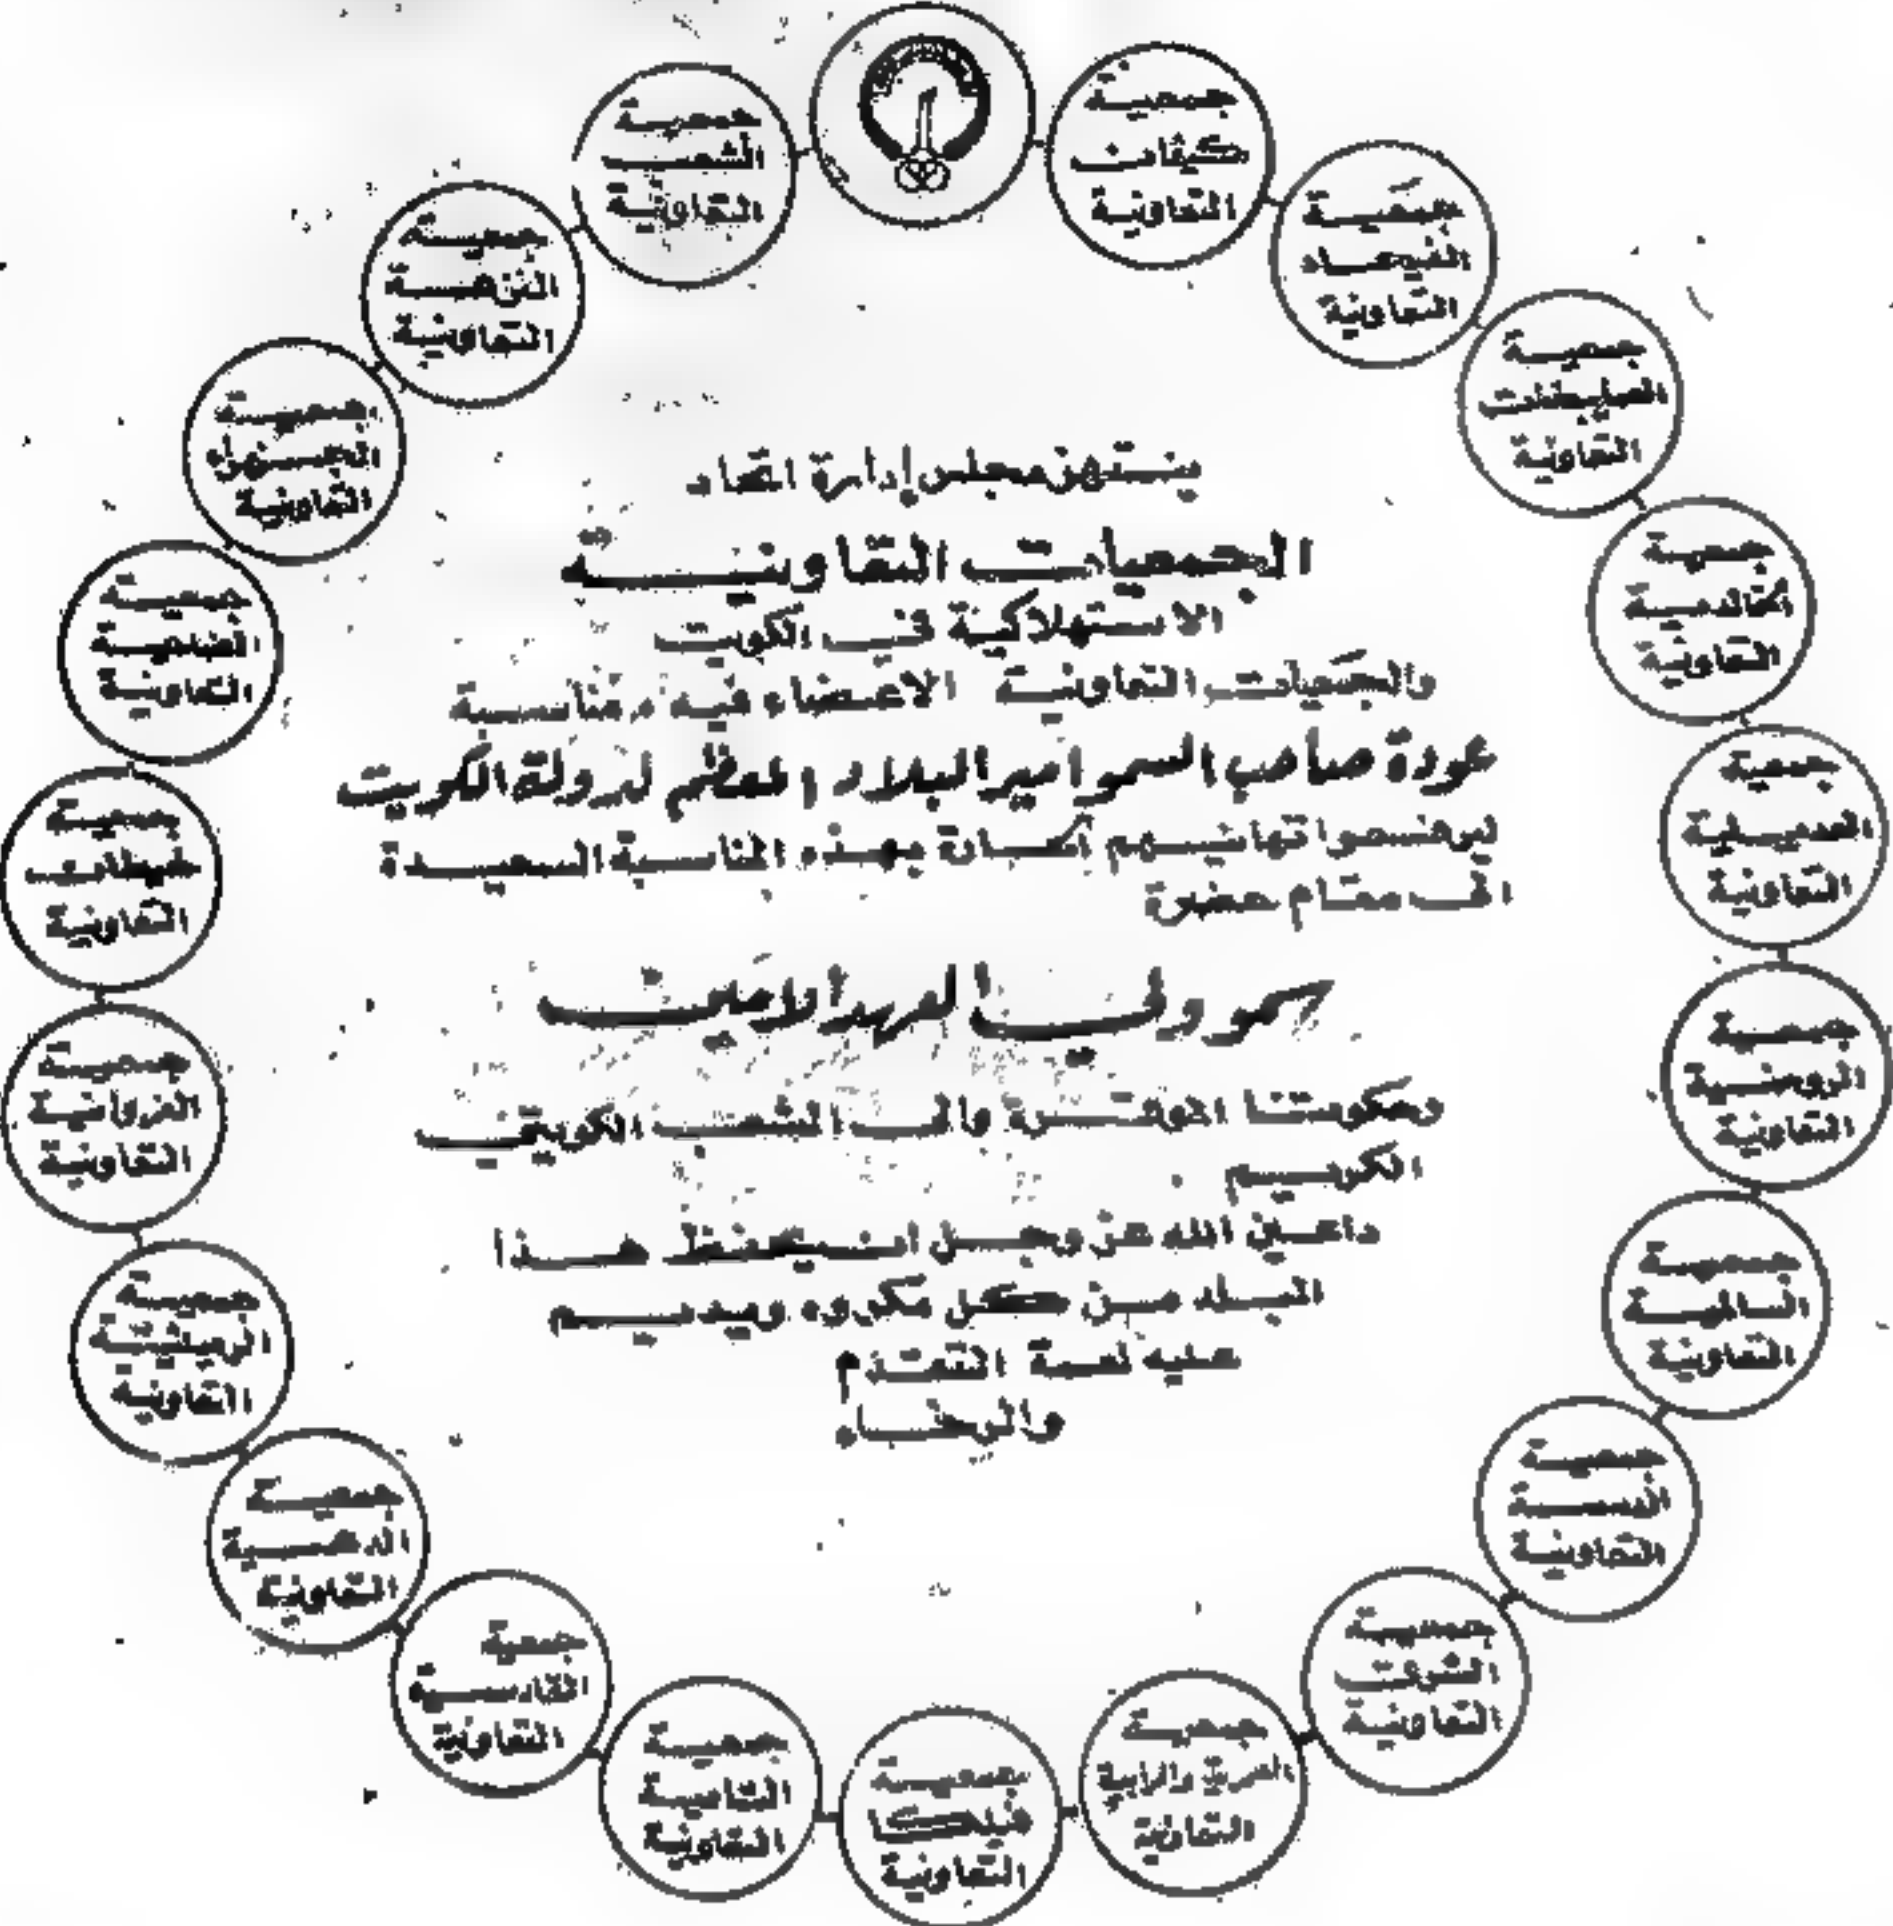 ينتهز مجلس إدارة اتحاد
الجمعيات التعاونية
الاستهلاكية في الكويت
والجمعيات التعاونية الاعضاء فيه مناسبة
عودة صاحب السمو امير البلاد المعظم لدولة الكويت
ليرفعوا تهانيهم بهذه المناسبة السعيدة
الى مقام حضرة
سمو ولي العهد الامين
وحكومتنا الموقرة والى الشعب الكويتي
الكريم .
داعين الله عز وجل ان يحفظ هذا
البلد من كل مكروه ويديم
عليه نعمة التقدم
والرخاء
جمعية
كيفان
التعاونية
جمعية
الفيحاء
التعاونية
جمعية
الصليبخات
التعاونية
جمعية
الخالدية
التعاونية
جمعية
العديلية
التعاونية
جمعية
الروضة
التعاونية
جمعية
السالمية
التعاونية
جمعية
الدسمة
التعاونية
جمعية
الشرق
التعاونية
جمعية
العمرية والرابية
التعاونية
جمعية
فيلكا
التعاونية
جمعية
الشامية
التعاونية
جمعية
القادسية
التعاونية
جمعية
الدعية
التعاونية
جمعية
التعاونية
جمعية
الفروانية
التعاونية
جمعية
خيطان
التعاونية
جمعية
الضاحية
التعاونية
جمعية
الجهراء
التعاونية
جمعية
النزهة
التعاونية
جمعية
الشعب
التعاونية